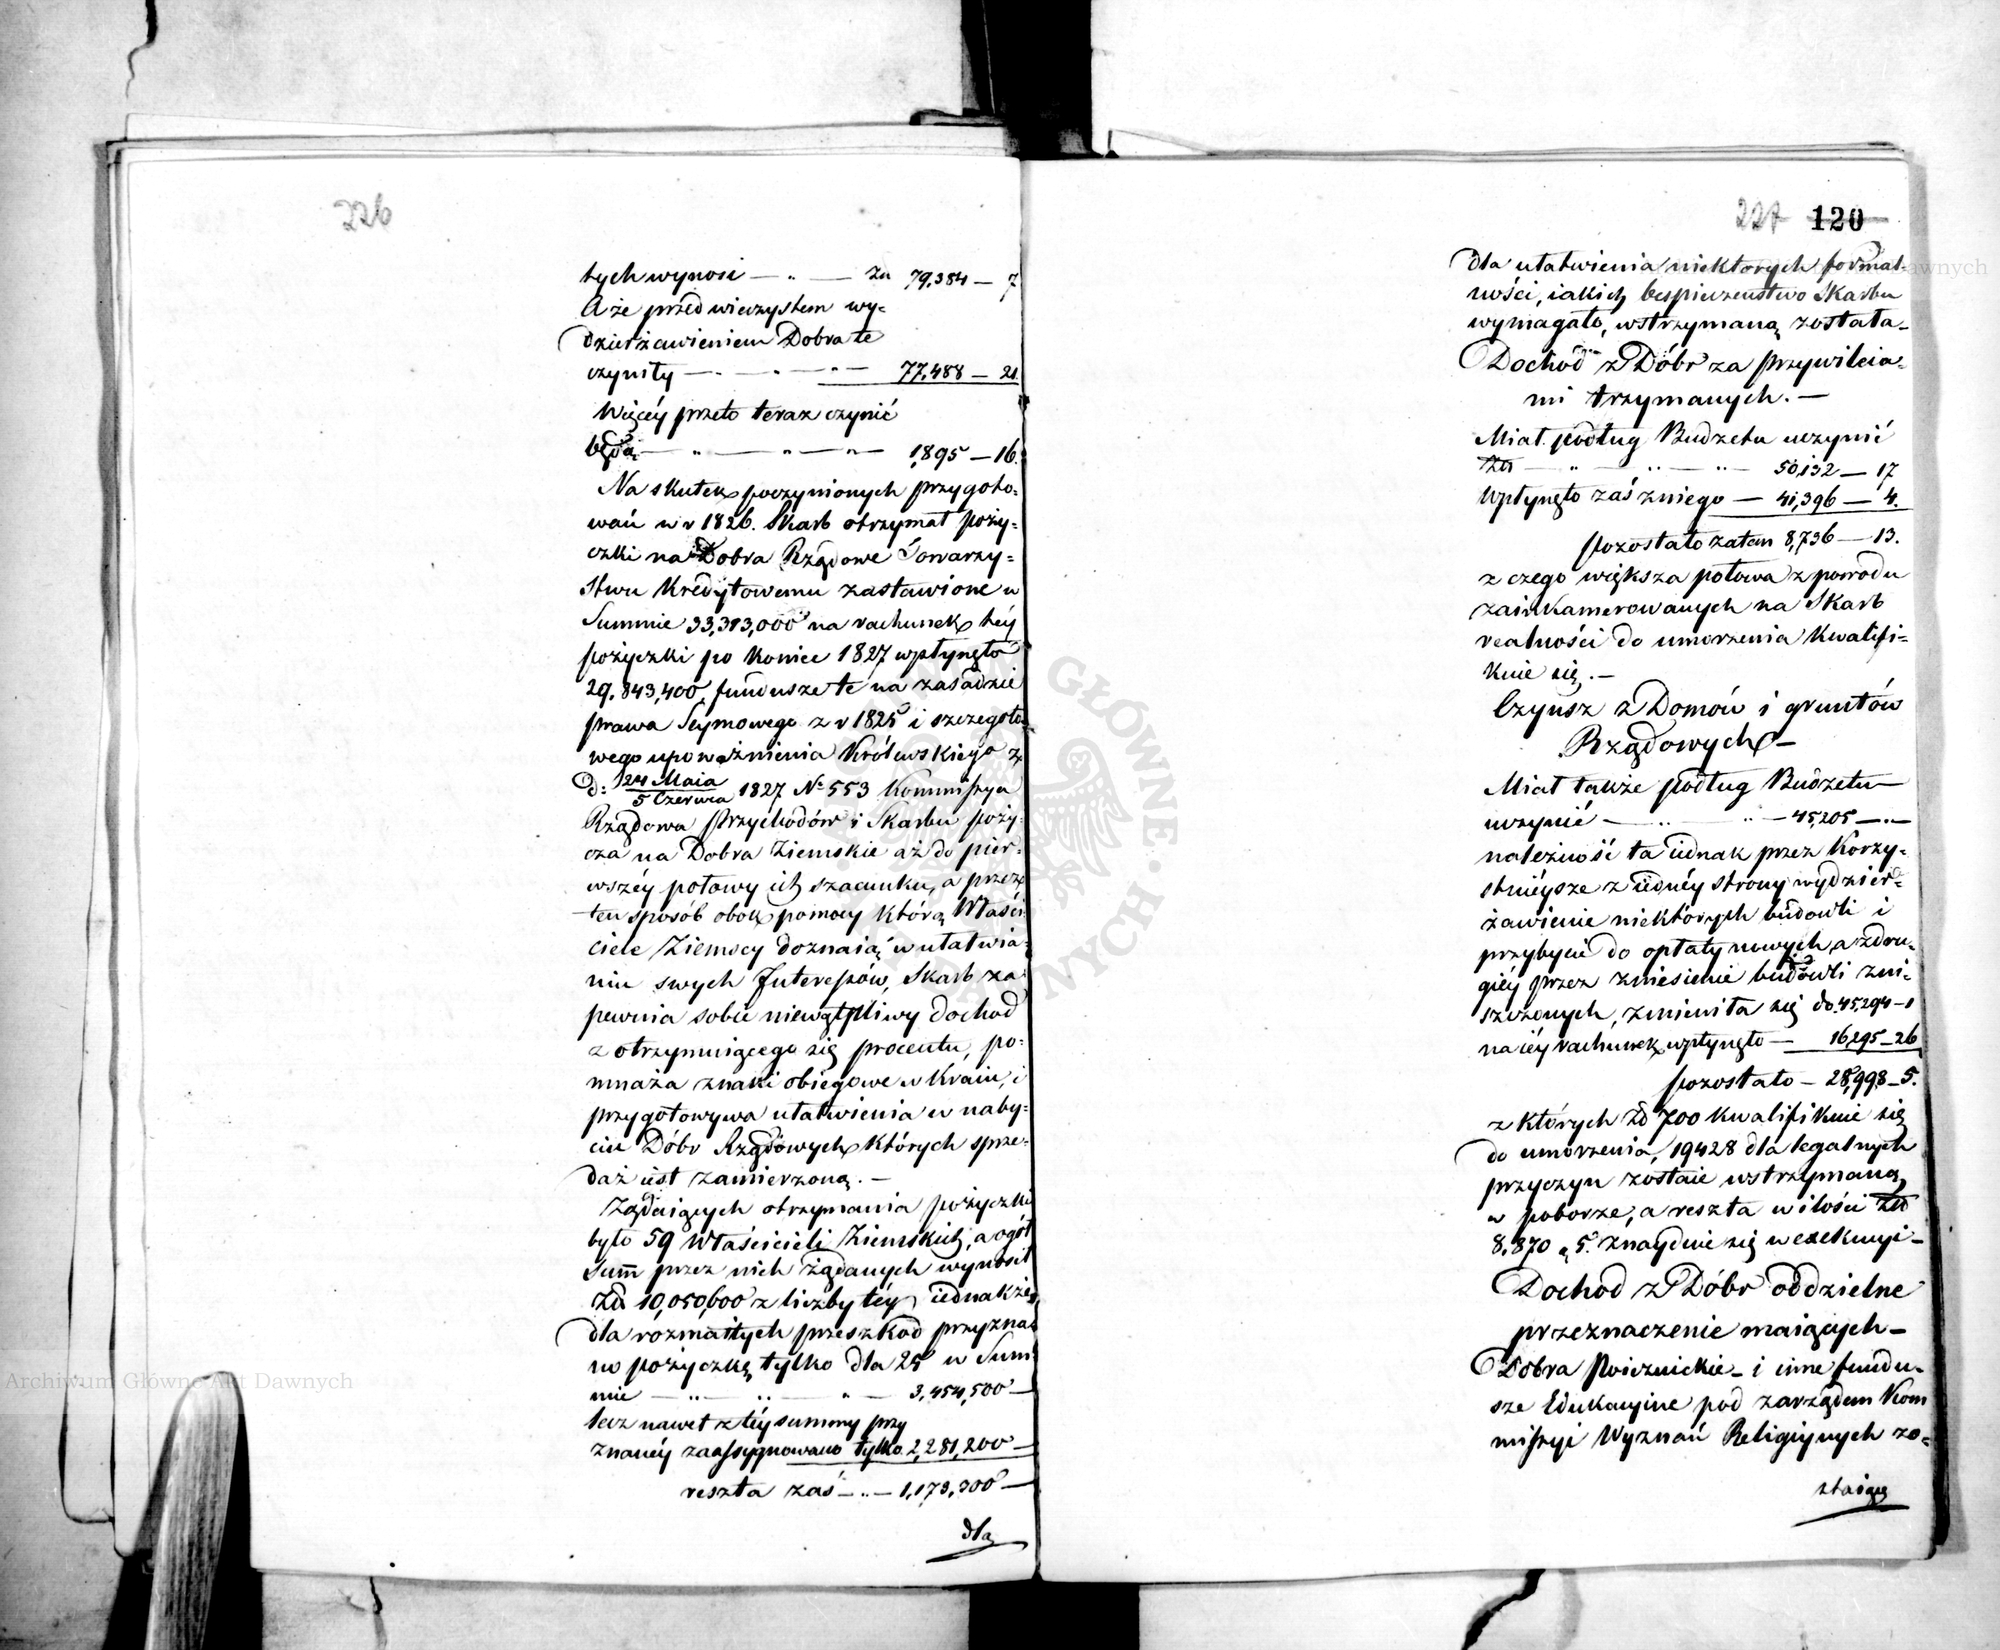 226
tych wynosi — „ — Zł 79,384 — 7
A że przed wieczystem wy-
dzierżawieniem Dobra te
czyniły — „ — „ — 77,488 — 21.
Więcéy przeto teraz czynić
będą — „ — „ — 1,895 — 16.
Na skutek poczynionych przygoto-
wań w r 1826. Skarb otrzymał poży-
czki na Dobra Rządowe Towarzy-
stwu Kredytowemu zastawione w
Summie 33,313,000 na rachunek téy
pożyczki po koniec 1827 wpłynęło
29,843,400, fundusze te na zasadzie
prawa Seymowego z r 1825 i szczegóło-
wego upoważnienia Królewskiego z
d: 24 Maia / 5 Czerwca 1827 № 553 Kommissya
Rządowa Przychodów i Skarbu poży-
cza na Dobra Ziemskie aż do pier-
wszéy połowy ich szacunku, a przez
ten sposób obok pomocy którą Właści-
ciele Ziemscy doznaią w ułatwia-
niu swych Interessów, Skarb za-
pewnia sobie niewątpliwy dochod
z otrzymuiącego się procentu, po-
mnaża znaki obiegowe w Kraiu, i
przygotowywa ułatwienia w naby-
ciu Dóbr Rządowych których sprze-
daż iest zamierzoną. —
Żądaiących otrzymania pożyczki
było 59 Właścicieli Ziemskich, a ogół
Summ przez nich żądanych wynosił
Zł 10,050,600 z liczby téy iednakże
dla rozmaitych przeszkod przyzna-
no pożyczkę tylko dla 25 w Sum-
mie — „ — „ — „ — 3,454,500 —
lecz nawet z téy summy przy
znanéy zaassygnowano tylko 2,281,200 —
reszta zaś — „ — 1,173,300 —
dla
227 120
dla ułatwienia niektorych formal-
ności, iakich bespieczeństwo Skarbu
wymagało, wstrzymaną została —
Dochod z Dóbr za przywileia-
mi trzymanych. —
Miał podług Budżetu uczynić
Zł — „ — „ — „ — 50,132 — 17
Wpłynęło zaś z niego — 41,396 — 4.
pozostało zatem 8,736 — 13.
z czego większa połowa z powodu
zainkamerowanych na Skarb
realności do umorzenia kwalifi-
kuie się. —
Czynsz z Domów i gruntów
Rządowych —
Miał także podług Budżetu —
uczynić — „ — „ — 45,205 — „ —
należność ta iednak przez korzy-
stnieysze z iednéy strony wydzier-
żawienie niektórych budowli i
przybycie do opłaty nowych a z dru-
giéy przez zniesienie budowli zni-
szczonych, zmieniła się do 45,294 — 1
na iéy rachunek wpłynęło — 16,295 — 26
pozostało — 28,998 — 5.
z których Zł 700 kwalifikuie się
do umorzenia, 19428 dla legalnych
przyczyn zostaie wstrzymaną
w poborze, a reszta w ilości Zł
8,870 „ 5. znayduie się w exekucyi —
Dochod z Dóbr oddzielne
przeznaczenie maiących —
Dobra Poiezuickie — i inne fundu-
sze Edukacyine pod zarządem Kom
missyi Wyznań Religiynych zo-
staiące
Archiwum Główne Akt Dawnych